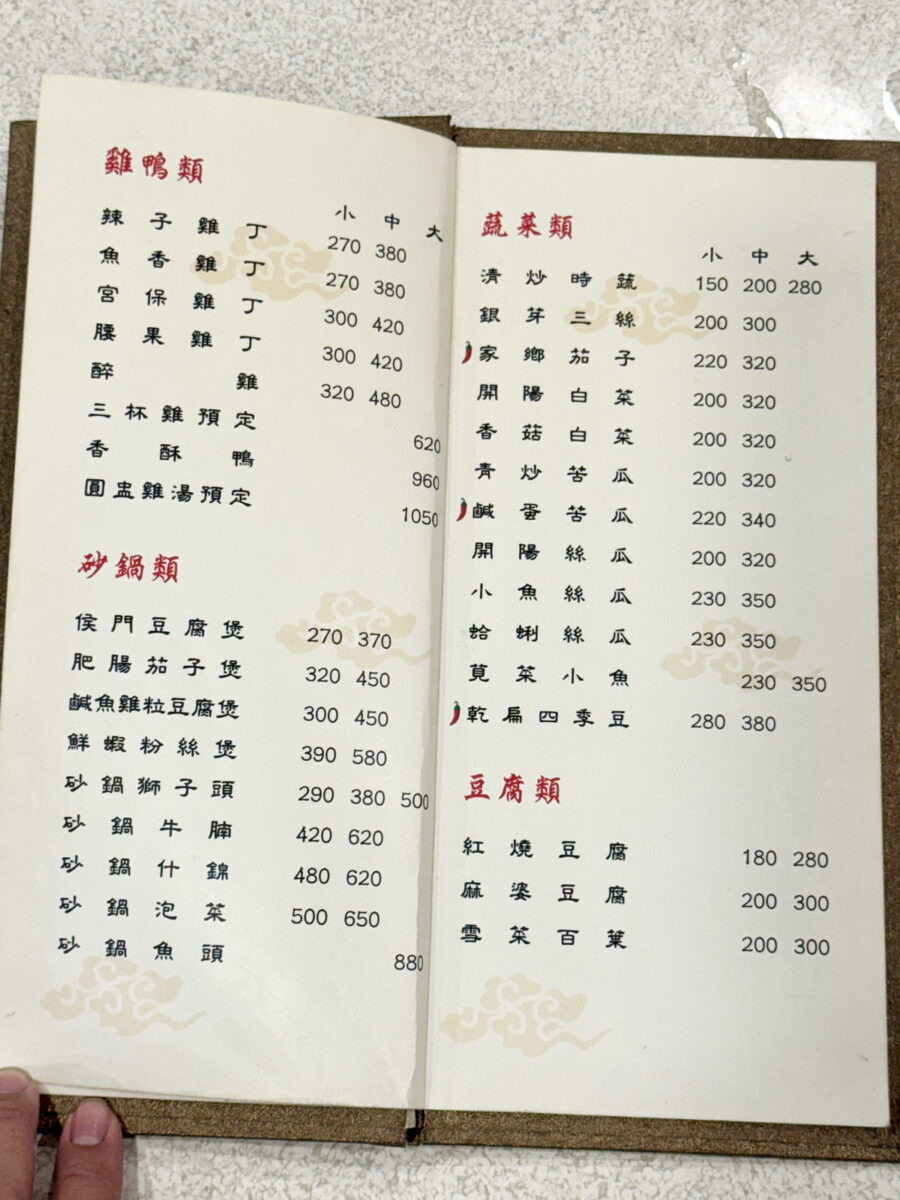 雞鴨類
小 中 大
辣子雞丁 270 380
魚香雞丁 270 380
宮保雞丁 300 420
腰果雞丁 300 420
醉雞 320 480
三杯雞預定 620
香酥鴨 960
圓盅雞湯預定 1050
砂鍋類
侯門豆腐煲 270 370
肥腸茄子煲 320 450
鹹魚雞粒豆腐煲 300 450
鮮蝦粉絲煲 390 580
砂鍋獅子頭 290 380 500
砂鍋牛腩 420 620
砂鍋什錦 480 620
砂鍋泡菜 500 650
砂鍋魚頭 880
蔬菜類
小 中 大
清炒時蔬 150 200 280
銀芽三絲 200 300
家鄉茄子 220 320
開陽白菜 200 320
香菇白菜 200 320
青炒苦瓜 200 320
鹹蛋苦瓜 220 340
開陽絲瓜 200 320
小魚絲瓜 230 350
蛤蜊絲瓜 230 350
莧菜小魚 230 350
乾扁四季豆 280 380
豆腐類
紅燒豆腐 180 280
麻婆豆腐 200 300
雪菜百葉 200 300